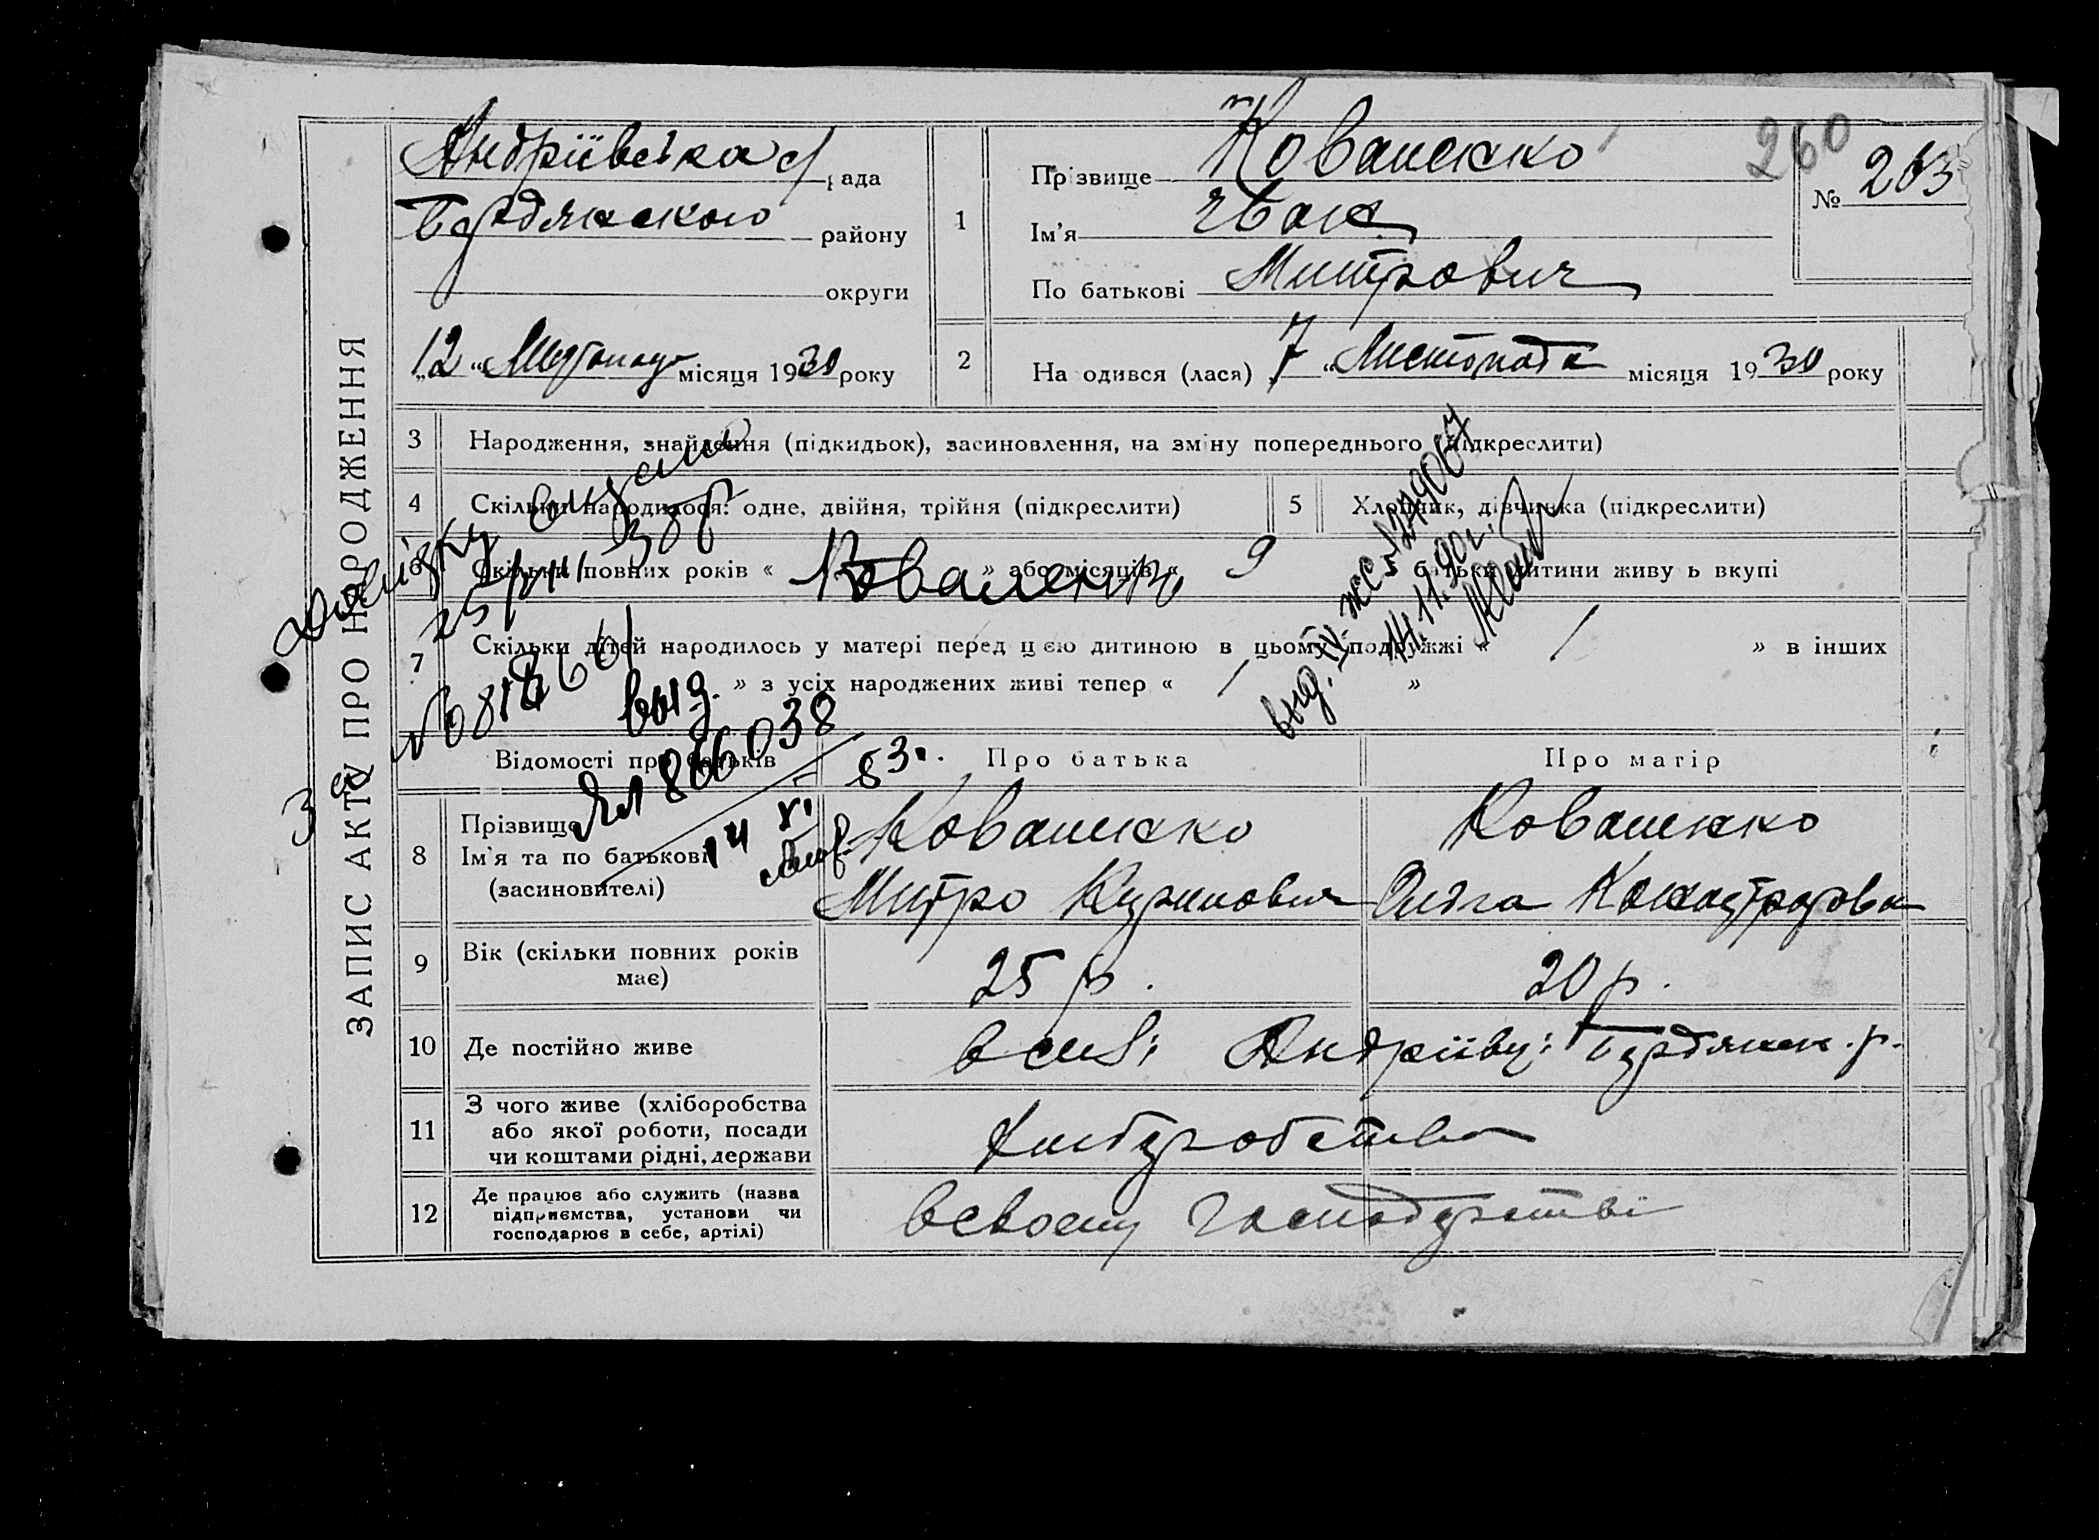 ЗАПИС АКТУ ПРО НАРОДЖЕННЯ
Андріївська с/рада
Бердянського району
округи
„12“ Листопада місяця 1930 року
260
№ 263
1 Прізвище Коваленко
Ім'я Іван
По батькові Митрович
2 Народився (лася) „7“ Листопада місяця 1930 року
3 Народження, знайдення (підкидьок), засиновлення, на зміну попереднього (підкреслити)
4 Скільки народилося: одне, двійня, трійня (підкреслити)
5 Хлопчик, дівчинка (підкреслити)
6 Скільки повних років « » або місяців « 9 батьки дитини живуть вкупі
7 Скільки дітей народилось у матері перед цією дитиною в цьому подружжі « / » в інших
« / » з усіх народжених живі тепер « »
Довідку видано
25/VII 38 р
Коваленко
№ 081860
выд.
866038
14 XI 53
выд. IV-ЖС № 249067
14.11.90г.
Відомості про батьків
Про батька
Про матір
8 Прізвище
Ім'я та по батькові
(засиновителі)
Коваленко
Митро
Коваленко
Ольга
9 Вік (скільки повних років має)
25 р.
20 р.
10 Де постійно живе
в селі Андріївці Бердянськ. р.
11 З чого живе (хліборобства
або якої роботи, посади
чи коштами рідні, держави
Хліборобства
12 Де працює або служить (назва
підприємства, установи чи
господарює в себе, артілі)
в своєму господарстві